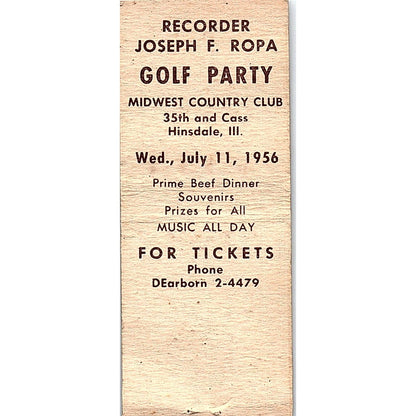 RECORDER
JOSEPH F. ROPA
GOLF PARTY
MIDWEST COUNTRY CLUB
35th and Cass
Hinsdale, Ill.
Wed., July 11, 1956
Prime Beef Dinner
Souvenirs
Prizes for All
MUSIC ALL DAY
FOR TICKETS
Phone
DEarborn 2-4479